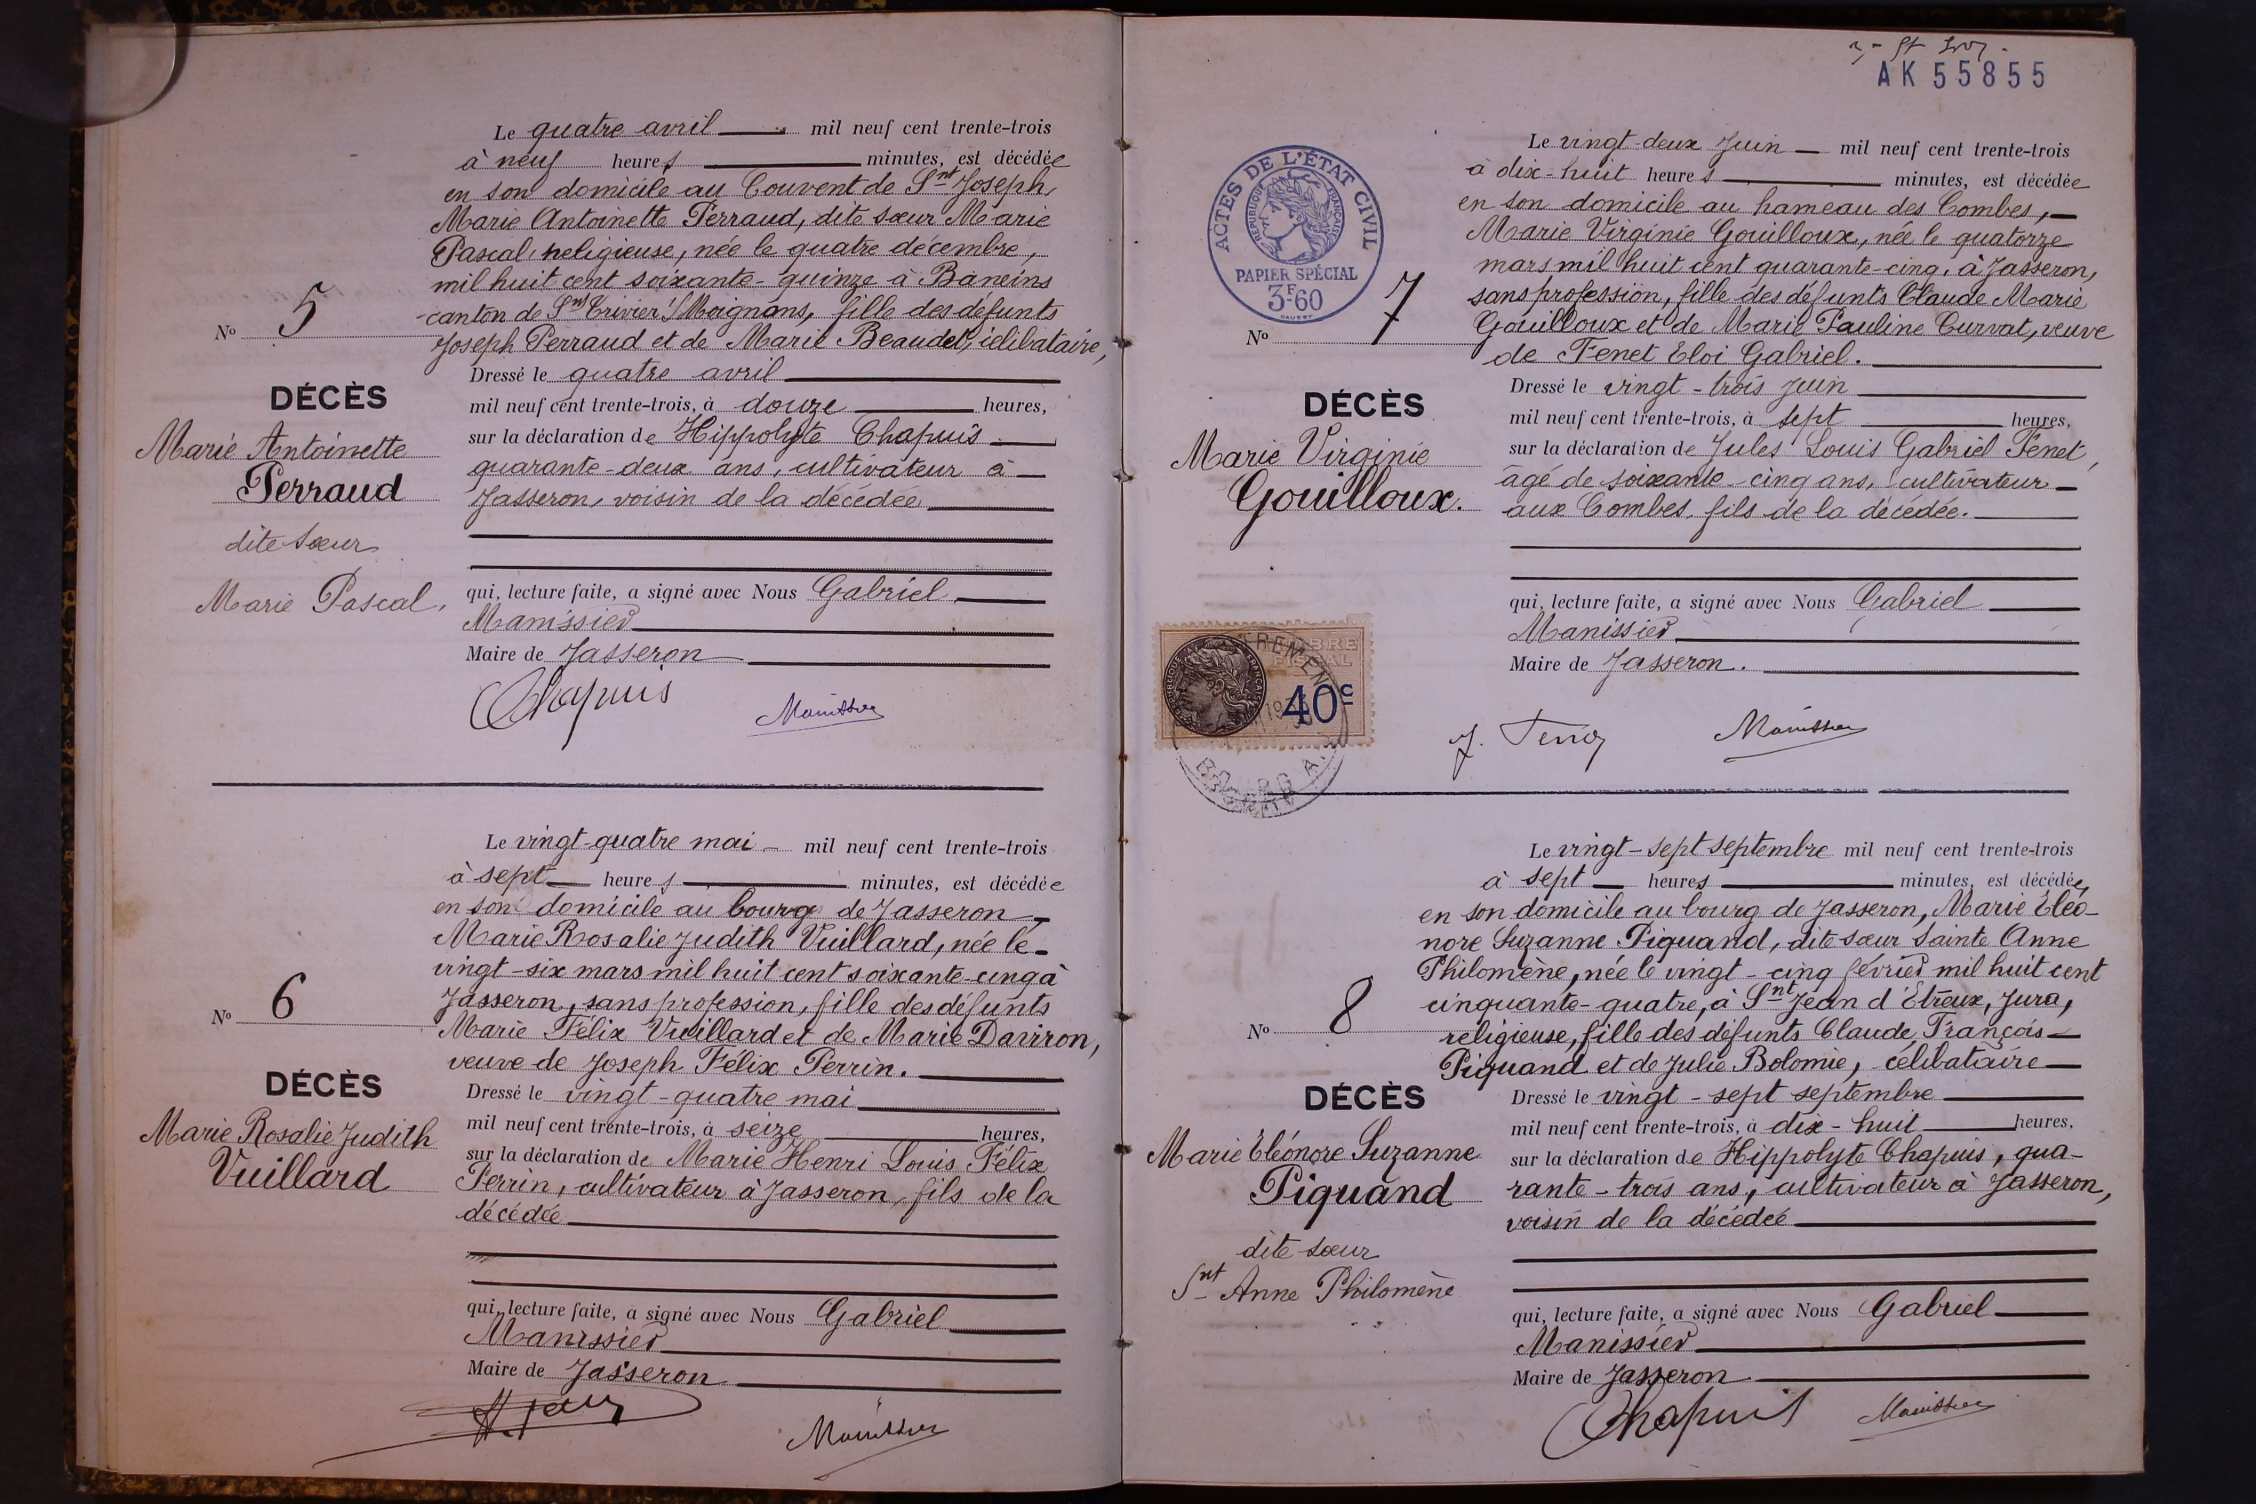 Le quatre avril mil neuf cent trente-trois
à neuf heures minutes, est décédée
en son domicile au Couvent de Snt Joseph,
Marie Antoinette Perraud, dite sœur Marie
Pascal, religieuse, née le quatre décembre,
mil huit cent soixante-quinze à Baneins
canton de Snt Trivier s/Moignans, fille des défunts
Joseph Perraud et de Marie Beaudet, célibataire,
No 5
DÉCÈS
Marie Antoinette
Perraud
dite sœur
Marie Pascal.
Dressé le quatre avril
mil neuf cent trente-trois, à douze heures,
sur la déclaration de Hippolyte Chapuis
quarante-deux ans, cultivateur à
Jasseron, voisin de la décédée
qui, lecture faite, a signé avec Nous Gabriel
Manissier
Maire de Jasseron
Chapuis Manissier
Le vingt-quatre mai mil neuf cent trente-trois
à sept heures minutes, est décédée
en son domicile au bourg de Jasseron
Marie Rosalie Judith Vuillard, née le
vingt-six mars mil huit cent soixante-cinq à
Jasseron, sans profession, fille des défunts
Marie Félix Vuillard et de Marie Daviron,
veuve de Joseph Félix Perrin.
No 6
DÉCÈS
Marie Rosalie Judith
Vuillard
Dressé le vingt-quatre mai
mil neuf cent trente-trois, à seize heures,
sur la déclaration de Marie Henri Louis Félix
Perrin, cultivateur à Jasseron, fils de la
décédée
qui, lecture faite, a signé avec Nous Gabriel
Manissier
Maire de Jasseron
Manissier
AK 55855
ACTES DE L'ÉTAT CIVIL
RÉPUBLIQUE FRANÇAISE
PAPIER SPÉCIAL
3F.60
Le vingt-deux Juin mil neuf cent trente-trois
à dix-huit heures minutes, est décédée
en son domicile au hameau des Combes,
Marie Virginie Gouilloux, née le quatorze
mars mil huit cent quarante-cinq, à Jasseron,
sans profession, fille des défunts Claude Marie
Gouilloux et de Marie Pauline Curvat, veuve
de Fenet Eloi Gabriel.
No 7
DÉCÈS
Marie Virginie
Gouilloux.
Dressé le vingt-trois Juin
mil neuf cent trente-trois, à sept heures,
sur la déclaration de Jules Louis Gabriel Fenet,
âgé de soixante-cinq ans, cultivateur
aux Combes, fils de la décédée.
qui, lecture faite, a signé avec Nous Gabriel
Manissier
Maire de Jasseron.
40c
J. Fenet Manissier
Le vingt-sept septembre mil neuf cent trente-trois
à sept heures minutes, est décédée,
en son domicile au bourg de Jasseron, Marie Eléo-
nore Suzanne Piquand, dite sœur Sainte Anne
Philomène, née le vingt-cinq février mil huit cent
cinquante-quatre, à Snt Jean d'Etreux, Jura,
religieuse, fille des défunts Claude François
Piquand et de Julie Bolomie, célibataire
No 8
DÉCÈS
Marie Eléonore Suzanne
Piquand
dite sœur
Snt Anne Philomène
Dressé le vingt-sept septembre
mil neuf cent trente-trois, à dix-huit heures,
sur la déclaration de Hippolyte Chapuis, qua-
rante-trois ans, cultivateur à Jasseron,
voisin de la décédée
qui, lecture faite, a signé avec Nous Gabriel
Manissier
Maire de Jasseron
Chapuis Manissier